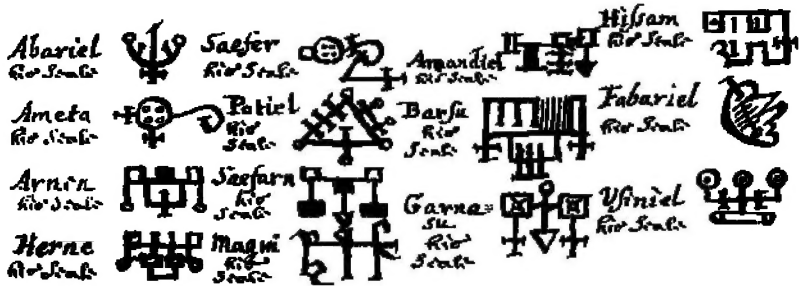 Abariel
his Seale
Ameta
his Seale
Arnen
his Seale
Herne
his Seale
Saefer
his Seale
Patiel
his
Seale
Saefarn
his
Seale
Magni
his
Seale
Amandiel
his Seale
Barsu
his
Seale
Garna=
su
his
Seale
Hissam
his Seale
Fabariel
his Seale
Usiniel
his Seale